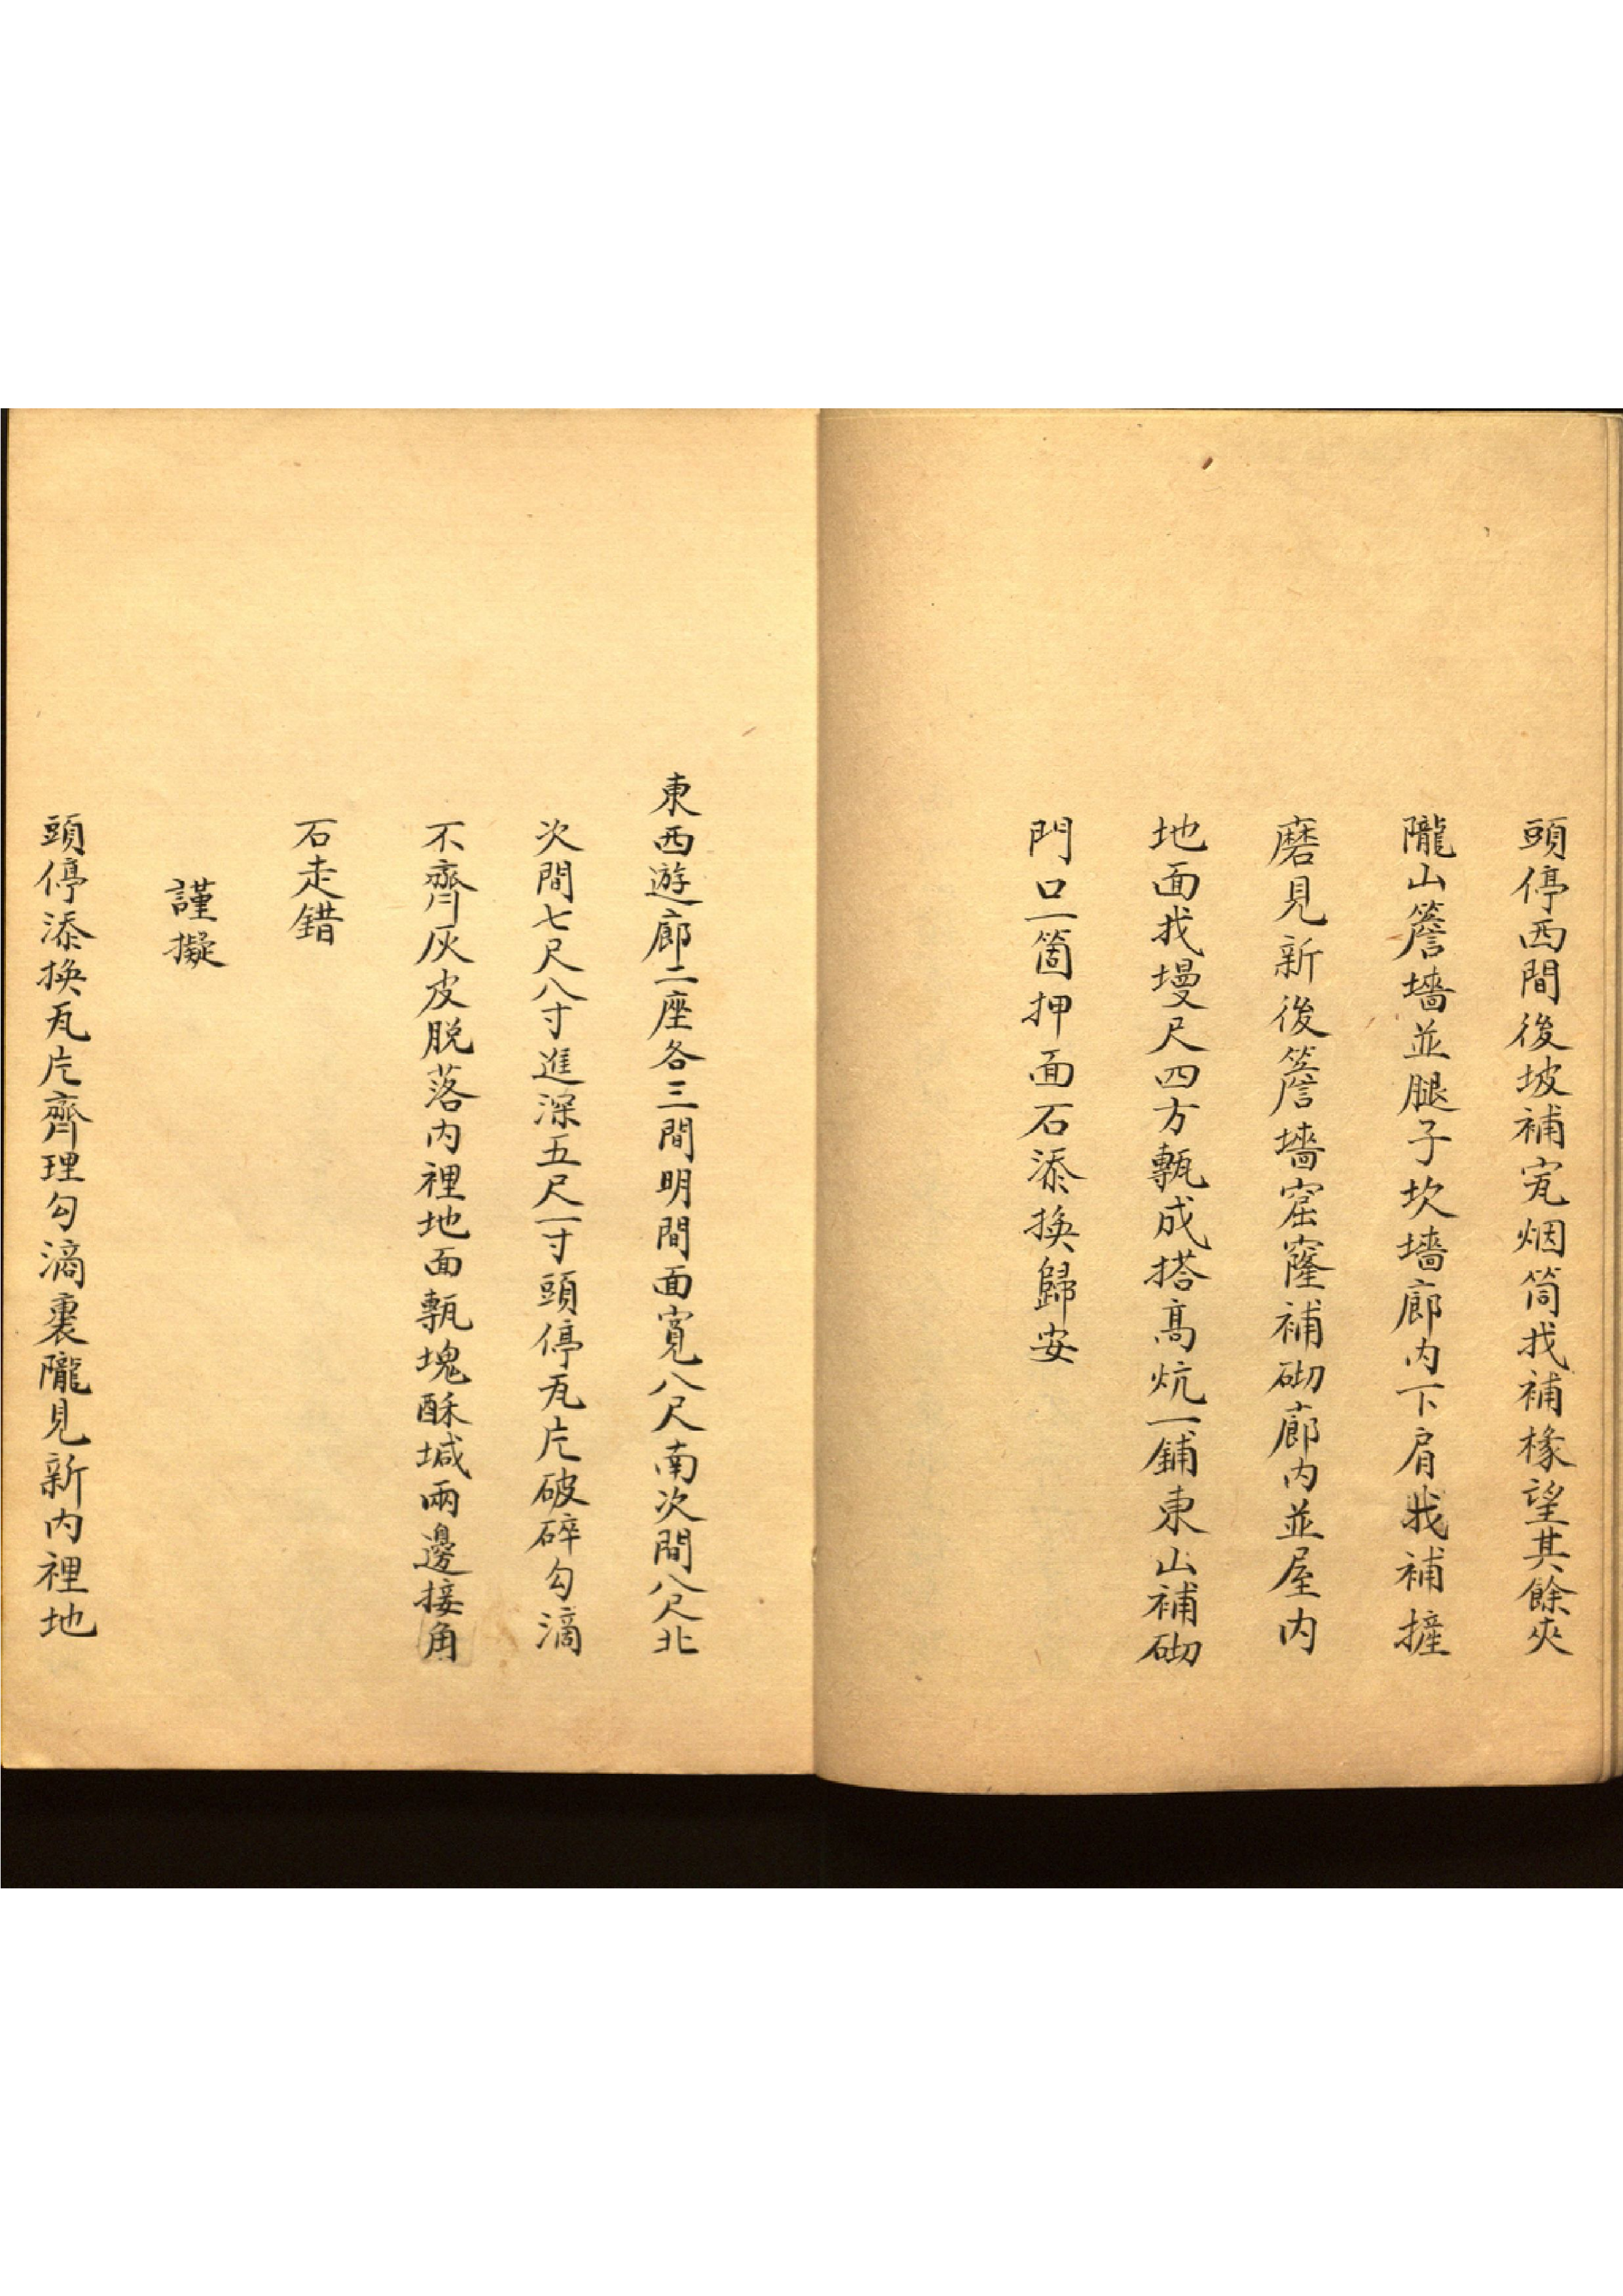 頭停西間後坡補㝫烟筒找補椽望其餘夾
隴山簷墻並腿子坎墻廊内下肩找補摌
磨見新後簷墻窟窿補砌廊内並屋内
地面找墁尺四方甎成搭高炕一鋪東山補砌
門口一箇押面石添換歸安
東西遊廊二座各三間明間面寬八尺南次間八尺北
次間七尺八寸進深五尺一寸頭停瓦片破碎勾滴
不齊灰皮脱落内裡地面甎塊酥堿兩邊接角
石走錯
謹擬
頭停添換瓦片齊理勾滴裹隴見新内裡地